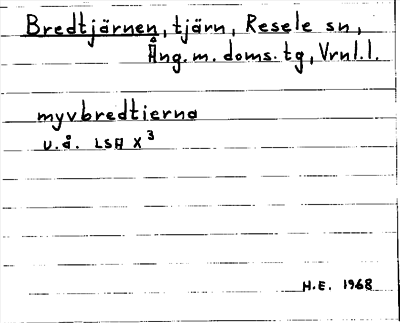 Bredtjärnen, tjärn, Resele sn,
Ång. m. doms. tg, Vrnl. l.
myvbredtierna
u.å. LSA X 3
H.E. 1968